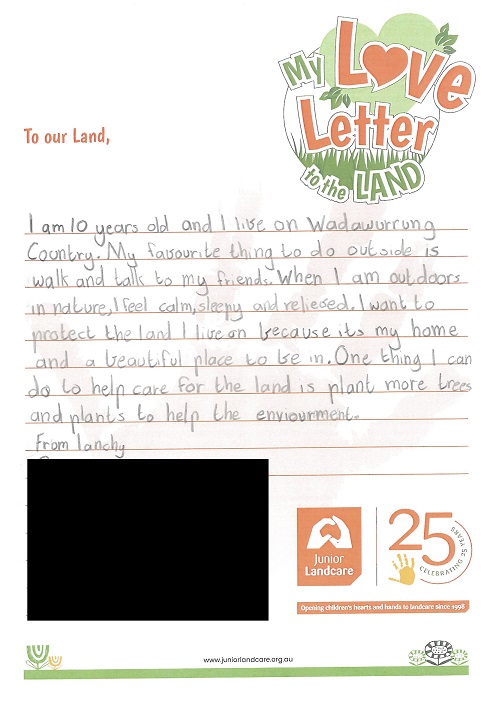 My Love
Letter
to the LAND
To our Land,
I am 10 years old and I live on Wadawurrung
Country. My favourite thing to do outside is
walk and talk to my friends. When I am outdoors
in nature, I feel calm, sleepy and relieved. I want to
protect the land I live on because its my home
and a beautiful place to be in. One thing I can
do to help care for the land is plant more trees
and plants to help the enviourment.
From lanchy
Junior
Landcare
25
CELEBRATING 25 YEARS
Opening children's hearts and hands to landcare since 1998
www.juniorlandcare.org.au